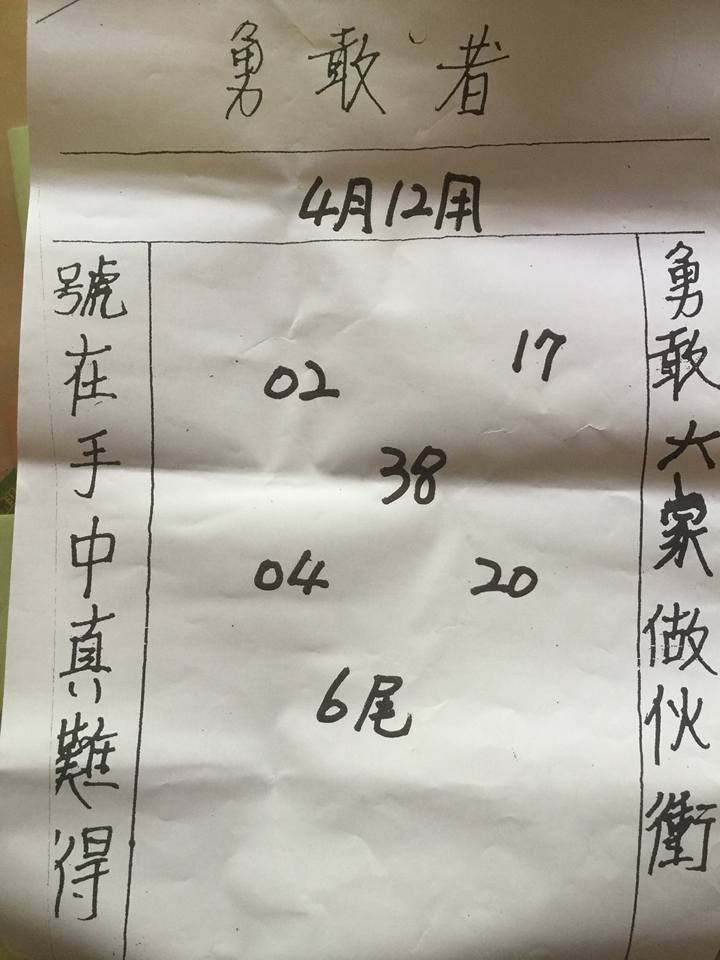 勇敢者
4月12用
勇敢大家做伙衝
02 17
38
04 20
6尾
號在手中真難得